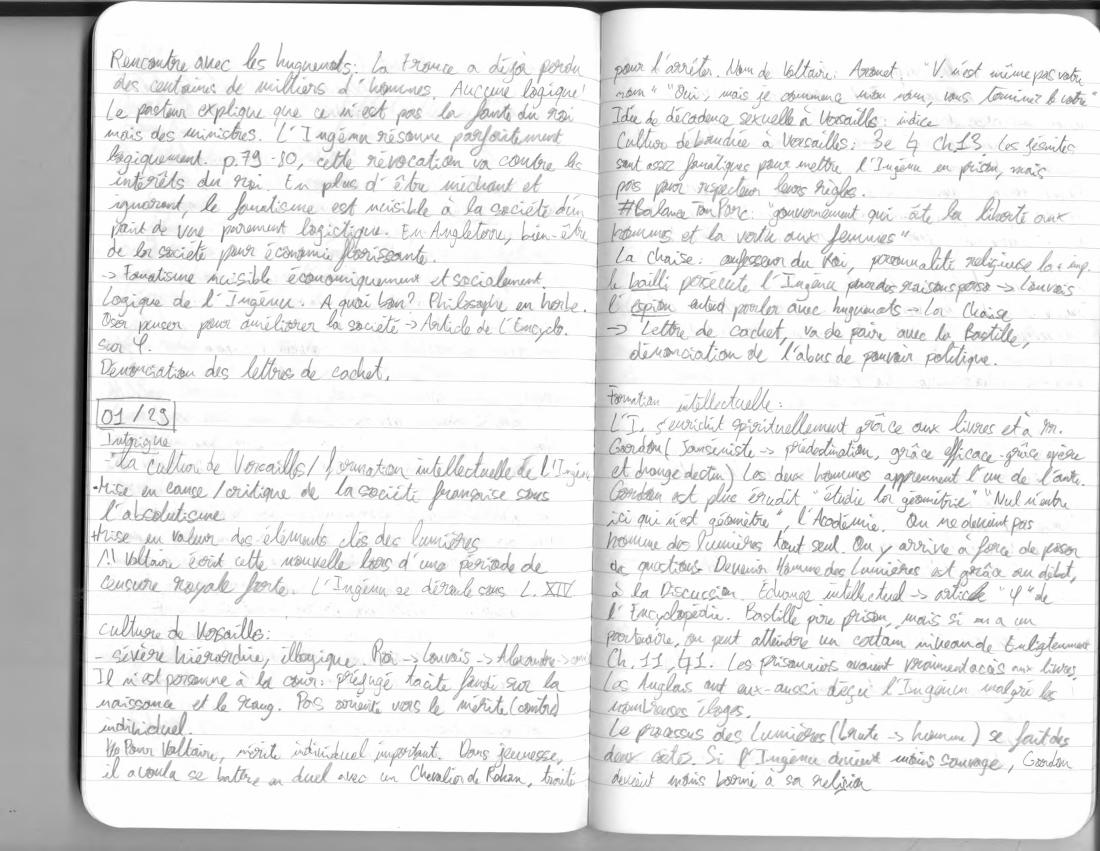 Rencontre avec les huguenots : La France a déjà perdu
des centaines de milliers d'hommes. Aucune logique!
Le pasteur explique que ce n'est pas la faute du roi
mais des ministres. L'Ingénu résonne parfaitement
logiquement. p.79-80, cette révocation va contre les
intérêts du roi. En plus d'être méchant et
ignorant, le fanatisme est nuisible à la société d'un
point de vue purement logistique. En Angleterre, bien-être
de la société pour économie florissante.
-> Fanatisme nuisible économiquement et socialement
Logique de l'Ingénu. A quoi bon? Philosophe en herbe.
Oser penser pour améliorer la société -> Article de l'Encyclo.
sur φ.
Dénonciation des lettres de cachet.
01/29
Intrigue
- la culture de Versailles / formation intellectuelle de l'Ingénu
- Mise en cause / critique de la société française sous
l'absolutisme
Mise en valeur des éléments clés des lumières
/!\ Voltaire écrit cette nouvelle lors d'une période de
censure royale forte. L'Ingénu se déroule sous L. XIV
Culture de Versailles :
- sévère hiérarchie, illogique. Roi -> Louvois -> Alexandre ->
Il n'est personne à la cour : préjugé tacite fondé sur la
naissance et le rang. Pas ouverte vers le mérite (contre)
individuel.
Pour Voltaire, mérite individuel important. Dans jeunesse,
il a voulu se battre en duel avec un Chevalier de Rohan, traité
pour l'arrêter. Nom de Voltaire : Arouet. "V n'est même pas votre
nom" "Oui, mais je commence mon nom, vous terminez le votre"
Idée de décadence sexuelle à Versailles : indice
Culture débauchée à Versailles : 3e ¶ Ch 13. Les jésuites
sont assez fanatiques pour mettre l'Ingénu en prison, mais
pas pour respecter leurs règles.
#BalanceTonPorc : "gouvernement qui ôte la liberté aux
hommes et la vertu aux femmes"
La Chaise : confesseur du Roi, personnalité religieuse la + imp.
le bailli persécute l'Ingénu pour des raisons perso -> Louvois
l'espion entend parler avec huguenots -> La Chaise
-> Lettre de cachet, va de paire avec la Bastille,
dénonciation de l'abus de pouvoir politique.
Formation intellectuelle :
L'I. s'enrichit spirituellement grâce aux livres et à M.
Gordon (Janséniste -> prédestination, grâce efficace - grâce opère
et change destin) Les deux hommes apprennent l'un de l'autre.
Gordon est plus érudit "étudie la géométrie" "Nul n'entre
ici qui n'est géomètre", l'Académie. On ne devient pas
homme des lumières tout seul. On y arrive à force de poser
de questions. Devenir Homme des Lumières est grâce au débat,
à la Discussion. Échange intellectuel -> article "φ" de
l'Encyclopédie. Bastille pire prison, mais si on a un
partenaire, on peut atteindre un certain niveau de Enlightenment
Ch. 11, ¶1. Les prisonniers avaient vraiment accès aux livres.
Les Anglais ont eux-aussi déçu l'Ingénu malgré les
nombreuses éloges.
Le processus des Lumières (brute -> homme) se fait des
deux cotés. Si l'Ingénu devient moins sauvage, Gordon
devient moins borné à sa religion